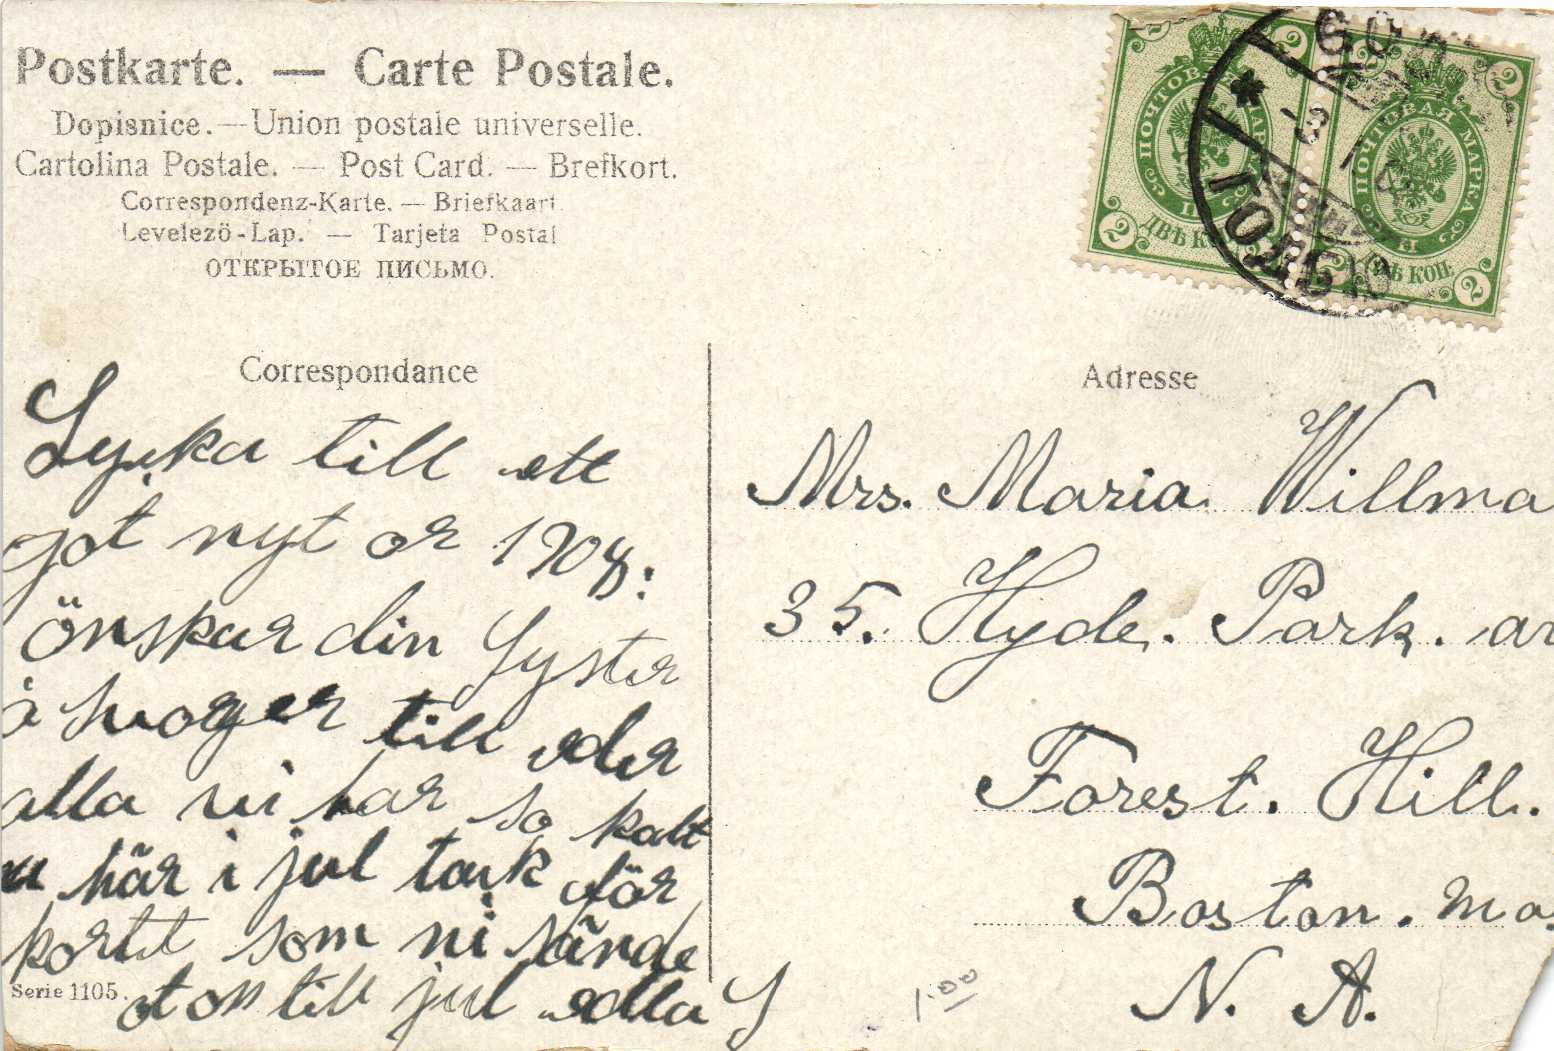 Postkarte. — Carte Postale.
Dopisnice. — Union postale universelle.
Cartolina Postale. — Post Card. — Brefkort.
Correspondenz-Karte. — Briefkaart.
Levelező-Lap. — Tarjeta Postal
ОТКРЫТОЕ ПИСЬМО.
ПОЧТОВАЯ МАРКА
ДВѢ КОП.
2
2
2
ПОЧТОВАЯ МАРКА
ДВѢ КОП.
2
2
Correspondance
Lycka till ett
got nyt or 1908:
önskar din Syster
å swoger till eder
alla vi har so kalt
nu här i jul tack för
kortet som ni sände
Serie 1105.
oton till jul alla S
Adresse
Mrs. Maria Willma
35. Hyde. Park. av
Forest. Hill.
Boston. Mas
N. A.
100